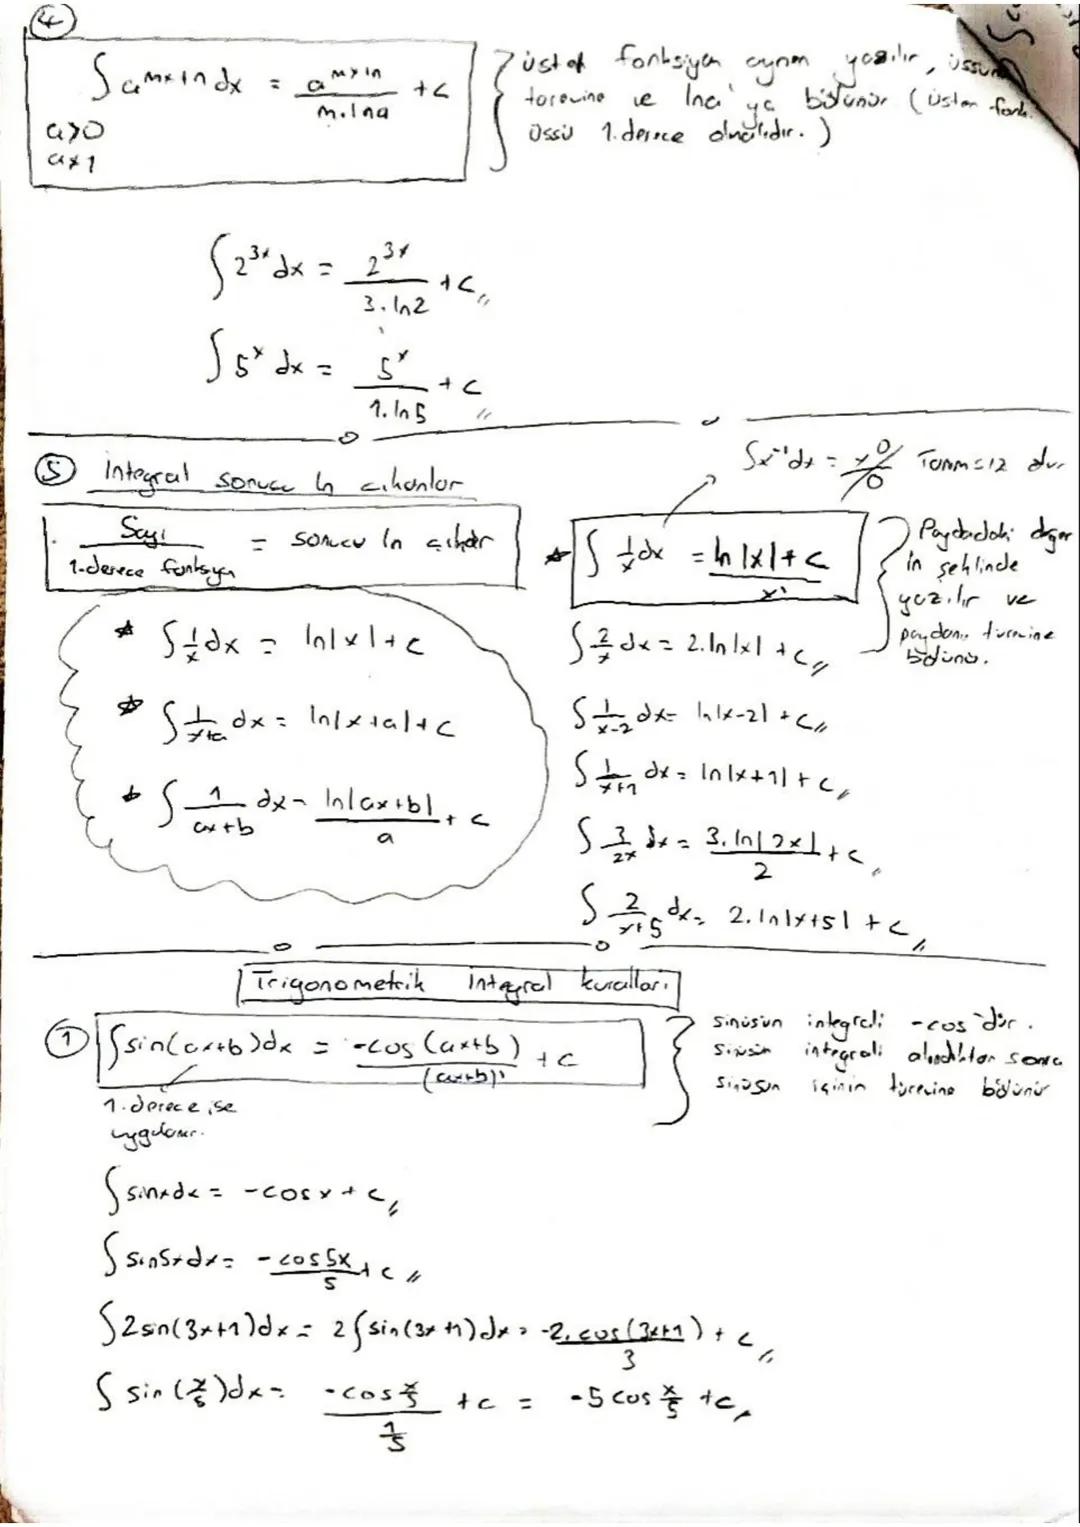 4
∫ a^(mx+n) dx = a^(mx+n) / m.lna + c
a>0
a≠1
üstel fonksiyon aynen yazılır, üssün
türevine ve lna'ya bölünür (üstel fonk.
üssü 1.derece olmalıdır.)
∫ 2^(3x) dx = 2^(3x) / 3.ln2 + c
∫ 5^x dx = 5^x / 1.ln5 + c
5 integral sonucu ln çıkanlar
∫x^(-1) dx = x^0 / 0 Tanımsız olur
Sayı / 1.derece fonksiyon = sonucu ln çıkar
∫ 1/x dx = ln|x| + c / x'
Paydadaki değer
ln şeklinde
yazılır ve
paydanın türevine
bölünür.
∫ 1/x dx = ln|x| + c
∫ 1/(x+a) dx = ln|x+a| + c
∫ 1/(ax+b) dx = ln|ax+b| / a + c
∫ 2/x dx = 2.ln|x| + c
∫ 1/(x-2) dx = ln|x-2| + c
∫ 1/(x+1) dx = ln|x+1| + c
∫ 3/2x dx = 3.ln|2x| / 2 + c
∫ 2/(x+5) dx = 2.ln|x+5| + c
Trigonometrik İntegral kuralları
1 ∫ sin(ax+b)dx = -cos(ax+b) / (ax+b)' + c
1.derece ise
uygulanır.
sinüsün integrali -cos'dür.
sinüsün integrali alındıktan sonra
sinüsün içinin türevine bölünür
∫ sinxdx = -cosx + c
∫ sin5xdx = -cos5x / 5 + c
∫ 2sin(3x+1)dx = 2∫ sin(3x+1)dx = -2.cos(3x+1) / 3 + c
∫ sin(x/5)dx = -cos x/5 / 1/5 + c = -5 cos x/5 + c